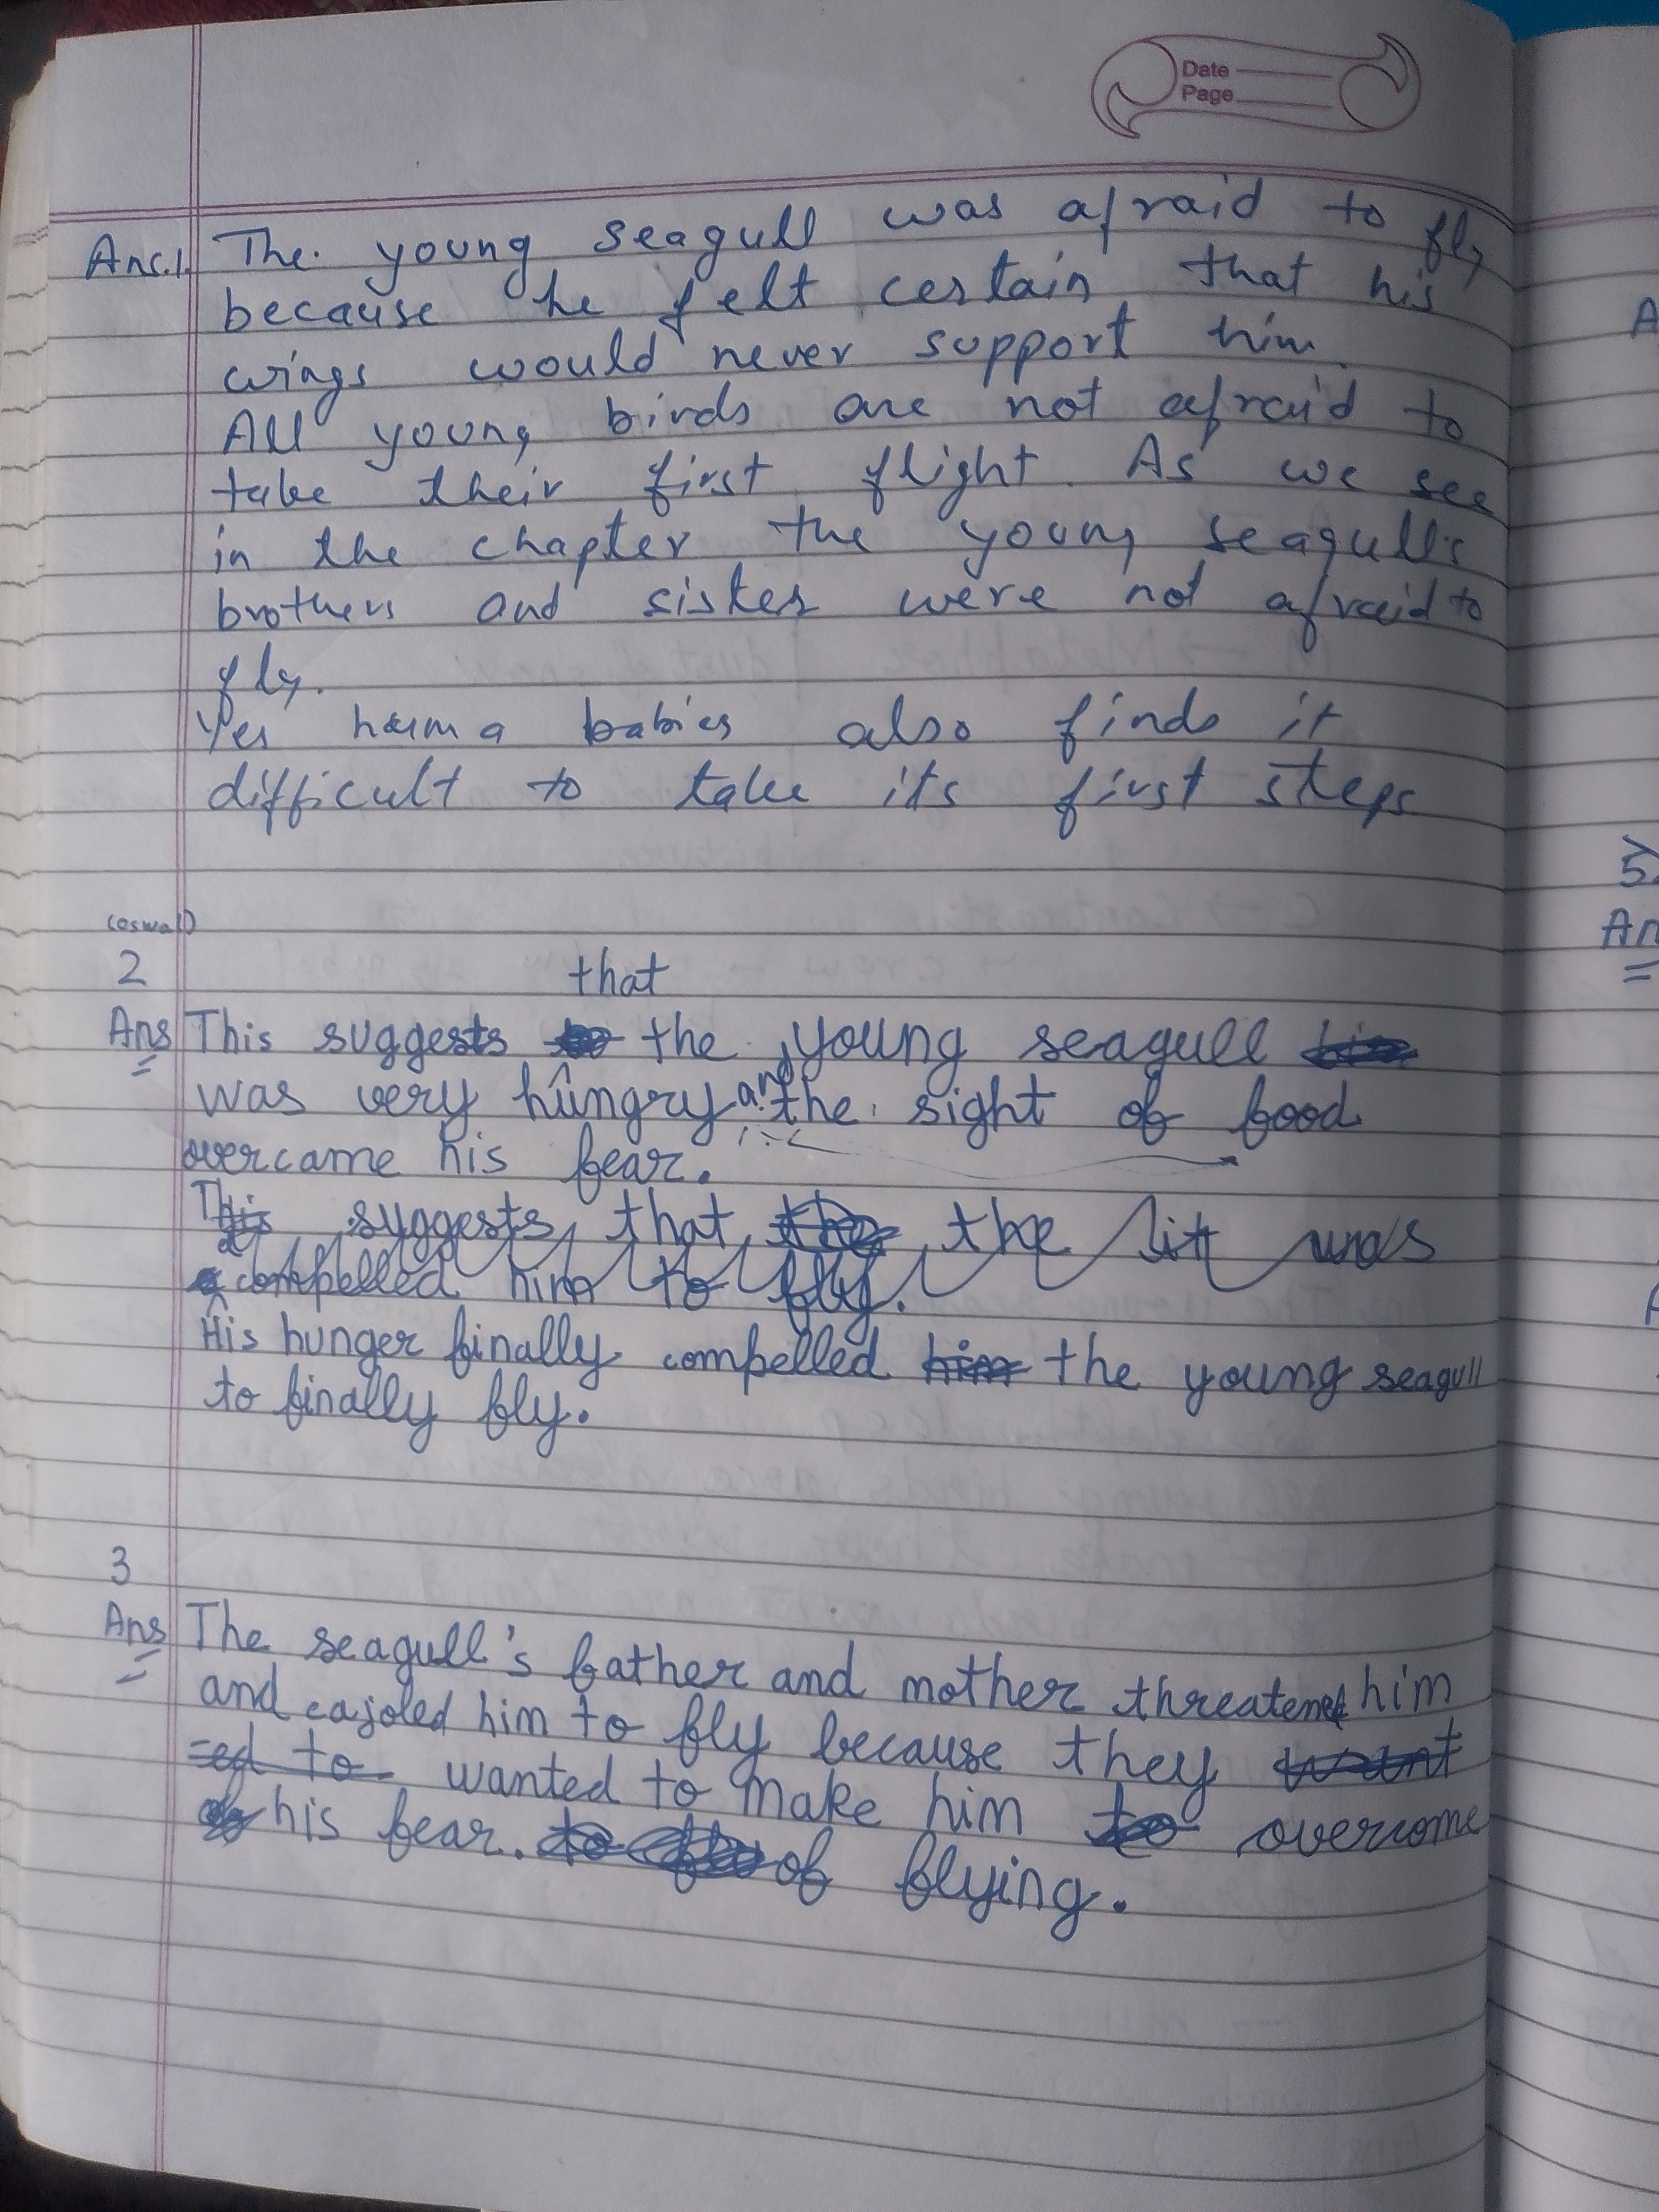 Date
Page
Ans.1. The young seagull was afraid to fly
because he felt certain that his
wings would never support him.
All young birds are not afraid to
take their first flight. As we see
in the chapter the young seagull's
brothers and sister were not afraid to
fly.
Yes huma babies also finds it
difficult to take its first steps
(oswal)
2
that
Ans This suggests the young seagull
was very hungry and the sight of food
overcame his fear.
This suggests that the was
compelled him to fly.
His hunger finally compelled him the young seagull
to finally fly.
3
Ans The seagull's father and mother threatened him
and cajoled him to fly because they want
=ed to wanted to make him to overcome
his fear. of flying.
A
5.
An